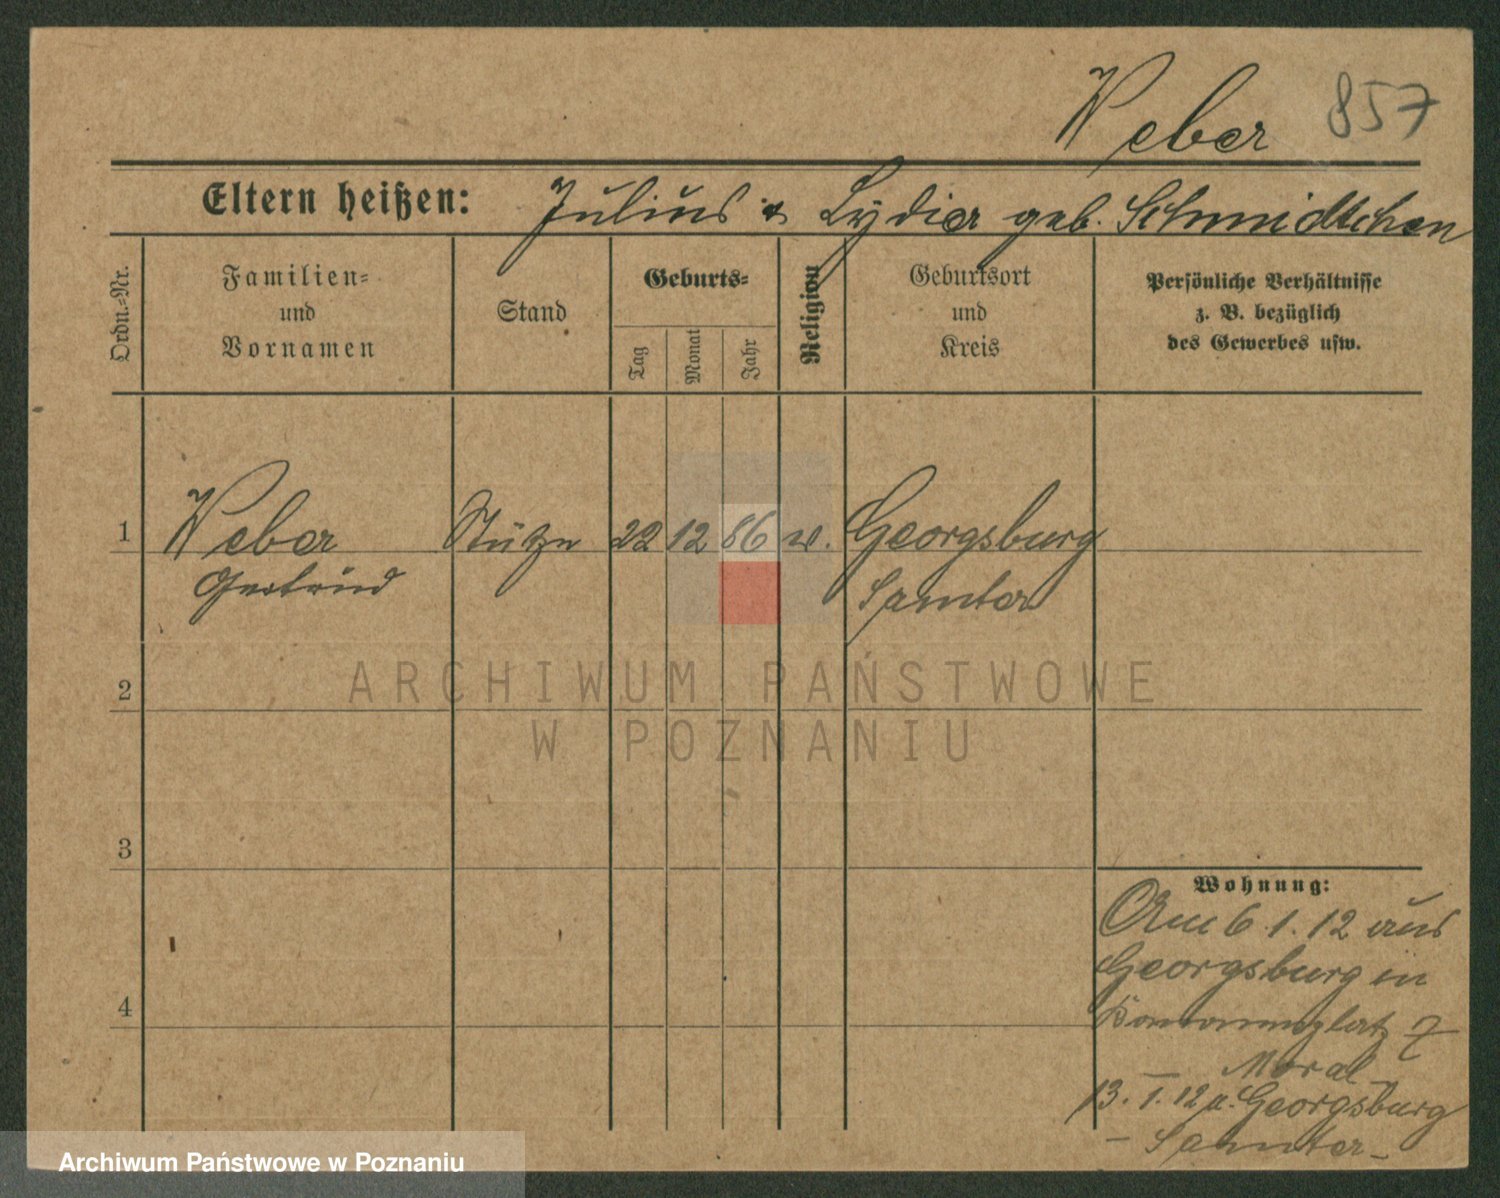 Weber 857
Eltern heißen: Julius & Lydia geb. Schmidtchen
Ordn.-Nr.
Familien-
und
Vornamen
Stand
Geburts-
Tag
Monat
Jahr
Religion
Geburtsort
und
Kreis
Persönliche Verhältnisse
z. B. bezüglich
des Gewerbes usw.
1 Weber Stütze 22 12 86 Georgsburg
Gertrud Samter
2
3
4
Wohnung:
Am 6. 1. 12 aus
Georgsburg in
7
Moral
13. 1. 12 n. Georgsburg
– Samter –
ARCHIWUM PAŃSTWOWE
W POZNANIU
Archiwum Państwowe w Poznaniu